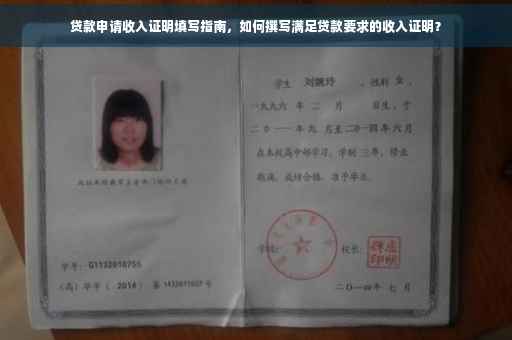 贷款申请收入证明填写指南，如何撰写满足贷款要求的收入证明？
学生 刘婉玲 ，性别 女 ，
一九九六 年 二 月 日生，于
二〇一一年九 月至二〇一四年 六 月
在本校高中部学习，学制 三 年，修业
期满，成绩合格，准予毕业。
学校： 校长：
二〇一四年 七 月
学号： G1132010755
(高) 毕字 ( 2014 ) 第 1432011027 号